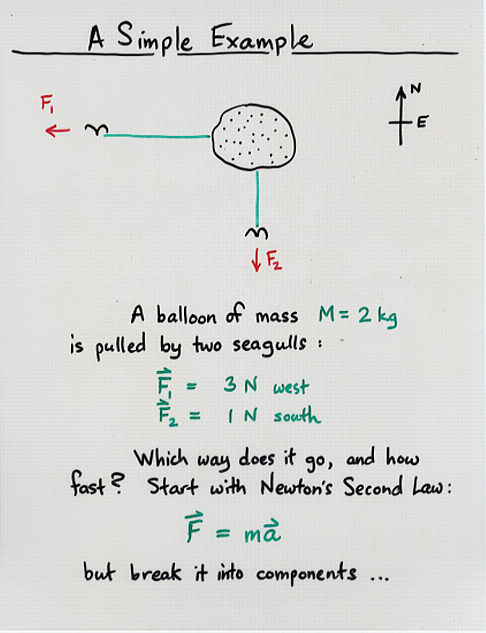 A Simple Example
F₁
N
E
F₂
A balloon of mass M = 2 kg
is pulled by two seagulls :
F⃗₁ = 3 N west
F⃗₂ = 1 N south
Which way does it go, and how
fast? Start with Newton's Second Law:
F⃗ = ma⃗
but break it into components ...